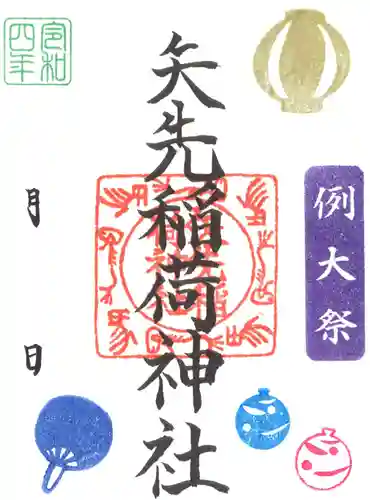 例大祭
矢先稲荷神社
月
日
令和
四年